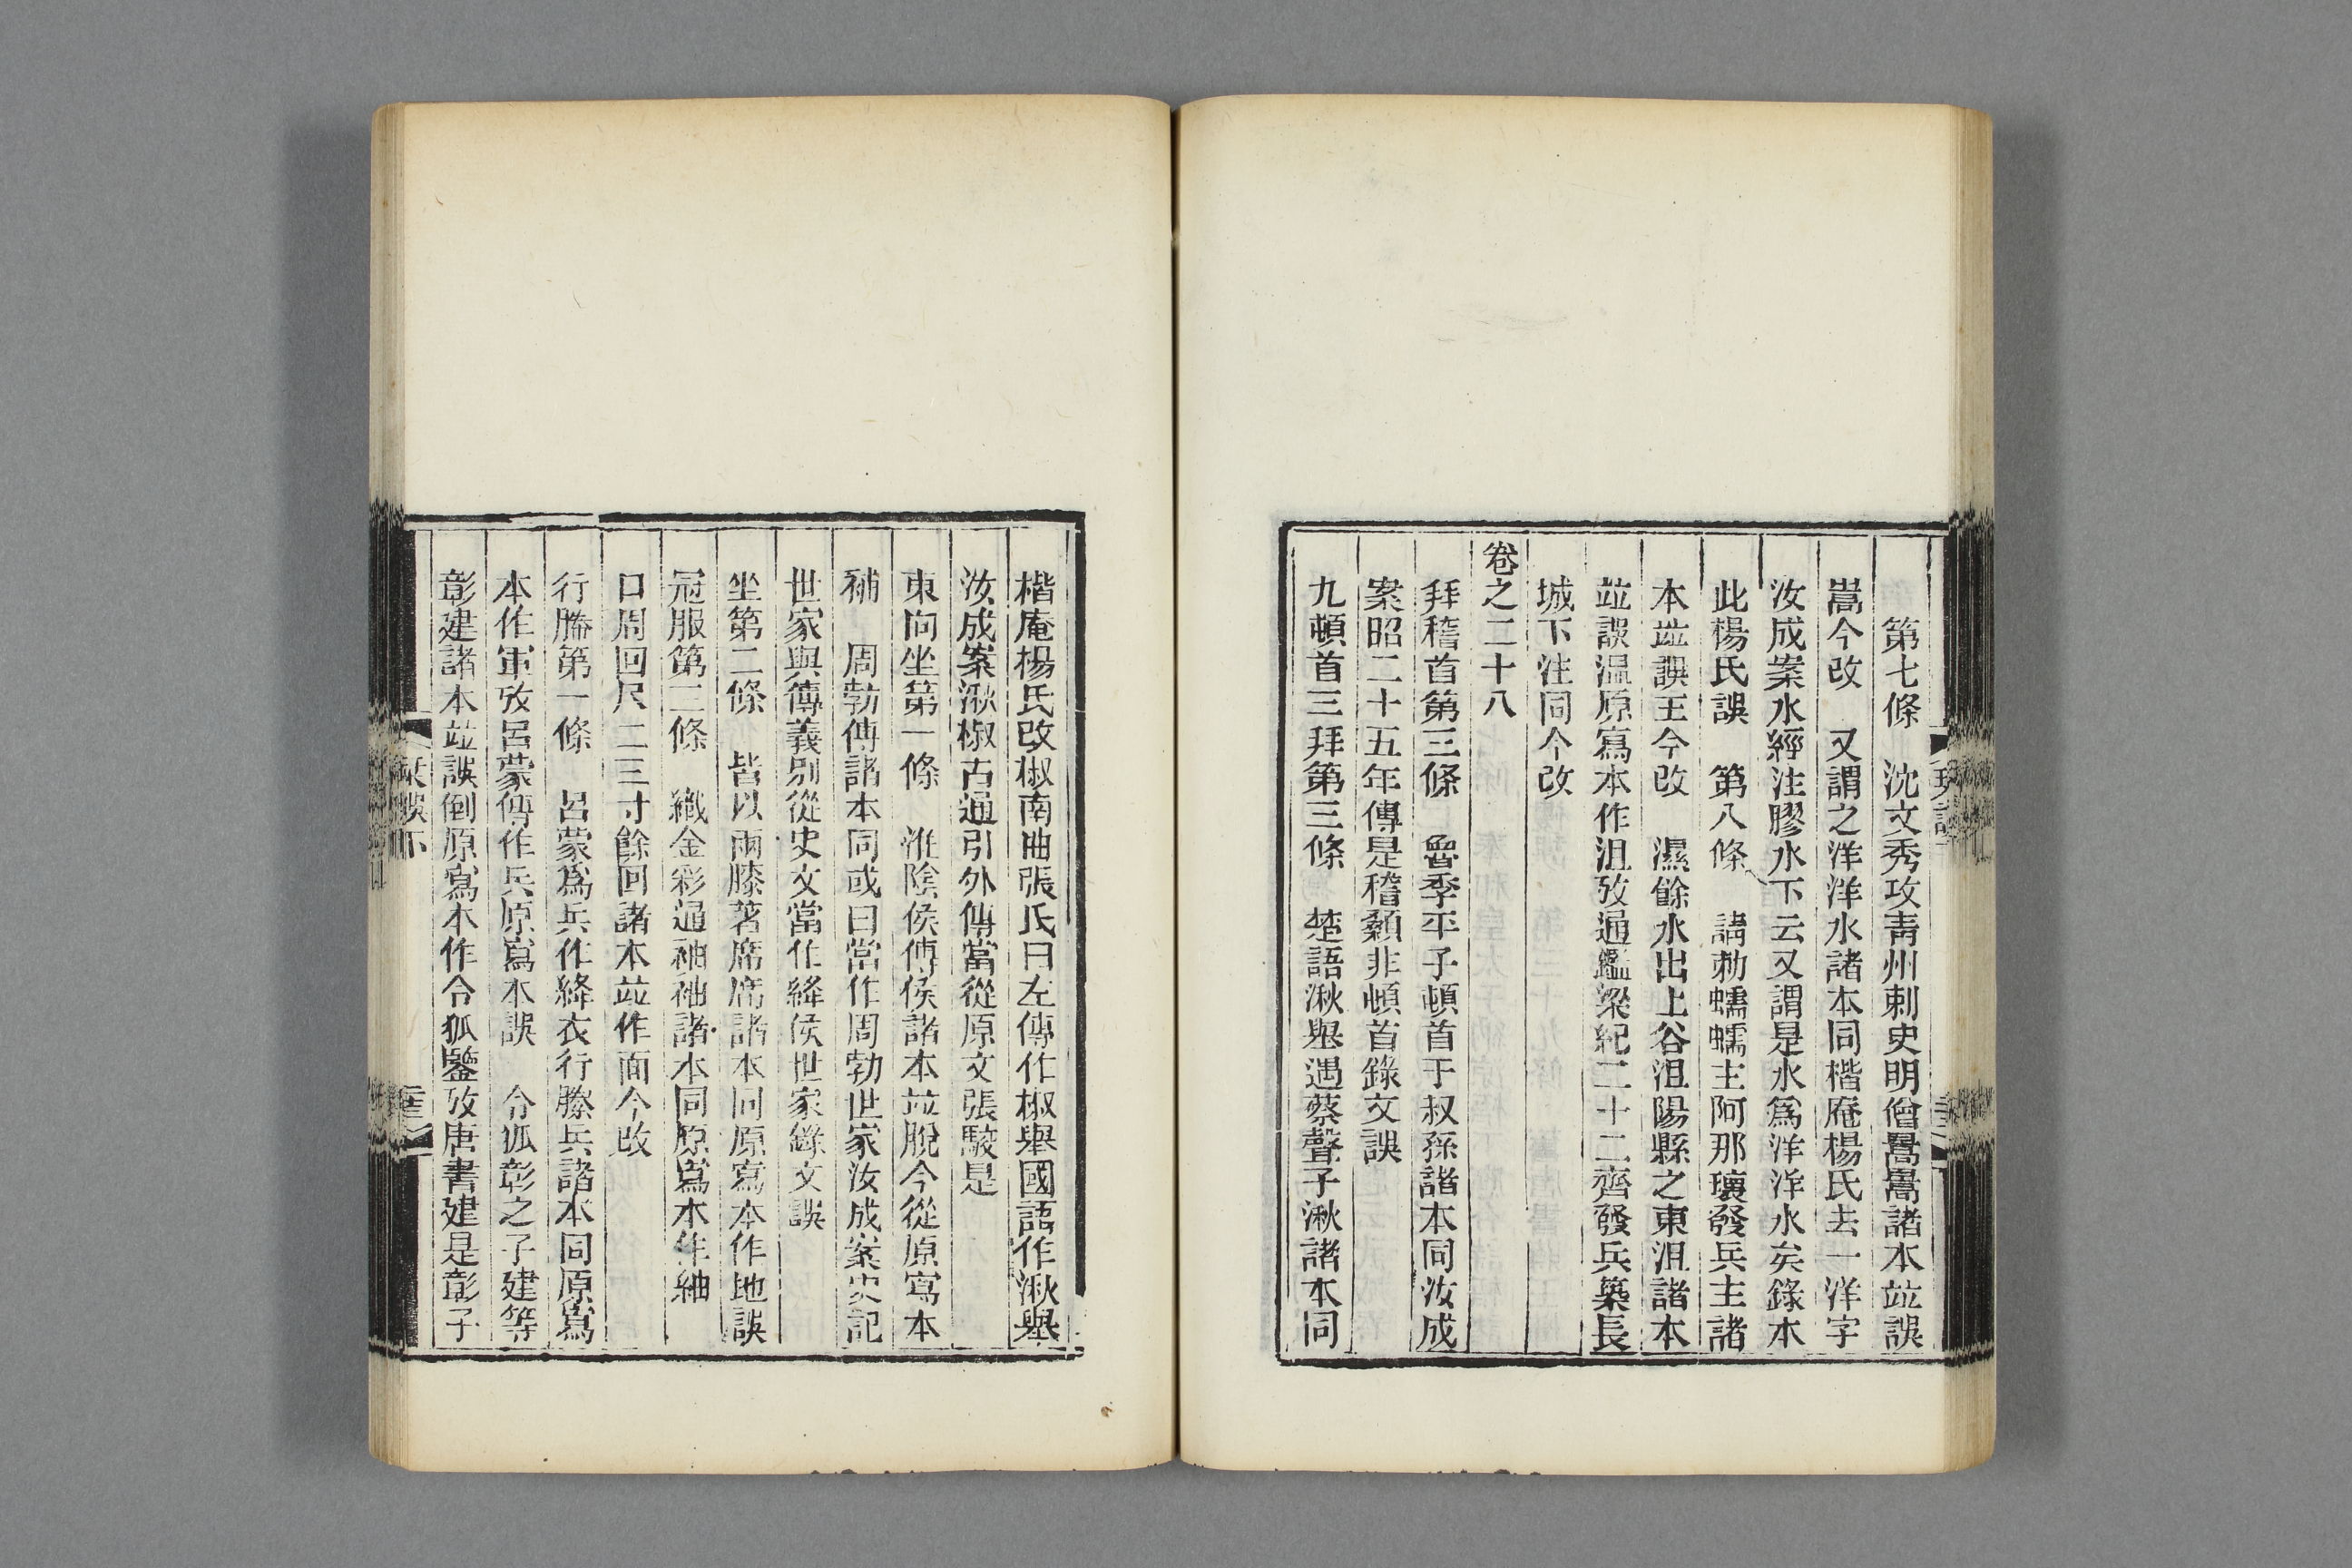 第七條　沈文秀攻青州刺史明僧暠暠諸本竝誤
嵩今改　又謂之洋洋水諸本同楷庵楊氏去一洋字
汝成案水經注膠水下云又謂是水爲洋洋水矣錄本
此楊氏誤　第八條　請勑蠕蠕主阿那瓌發兵主諸
本竝誤王今改　濕餘水出上谷沮陽縣之東沮諸本
竝誤温原寫本作沮攷通鑑梁紀二十二齊發兵築長
城下注同今改
卷之二十八
拜稽首第三條　魯季平子頓首于叔孫諸本同汝成
案昭二十五年傳是稽顙非頓首錄文誤
九頓首三拜第三條　楚語湫舉遇蔡聲子湫諸本同
楷庵楊氏改椒南曲張氏曰左傳作椒舉國語作湫舉
汝成案湫椒古通引外傳當從原文張駮是
東向坐第一條　淮陰侯傳侯諸本竝脫今從原寫本
補　周勃傳諸本同或曰當作周勃世家汝成案史記
世家與傳義別從史文當作絳侯世家錄文誤
坐第二條　皆以兩膝著席席諸本同原寫本作地誤
冠服第二條　織金彩通袖袖諸本同原寫本作紬
口周回尺二三寸餘回諸本竝作面今改
行縢第一條　呂蒙爲兵作絳衣行縢兵諸本同原寫
本作軍攷呂蒙傳作兵原寫本誤　令狐彰之子建等
彰建諸本竝誤倒原寫本作令狐鑒攷唐書建是彰子